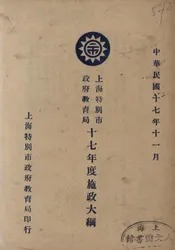 中華民國十七年十一月
上海特別市
政府教育局
十七年度施政大綱
上海特別市政府教育局印行
上海